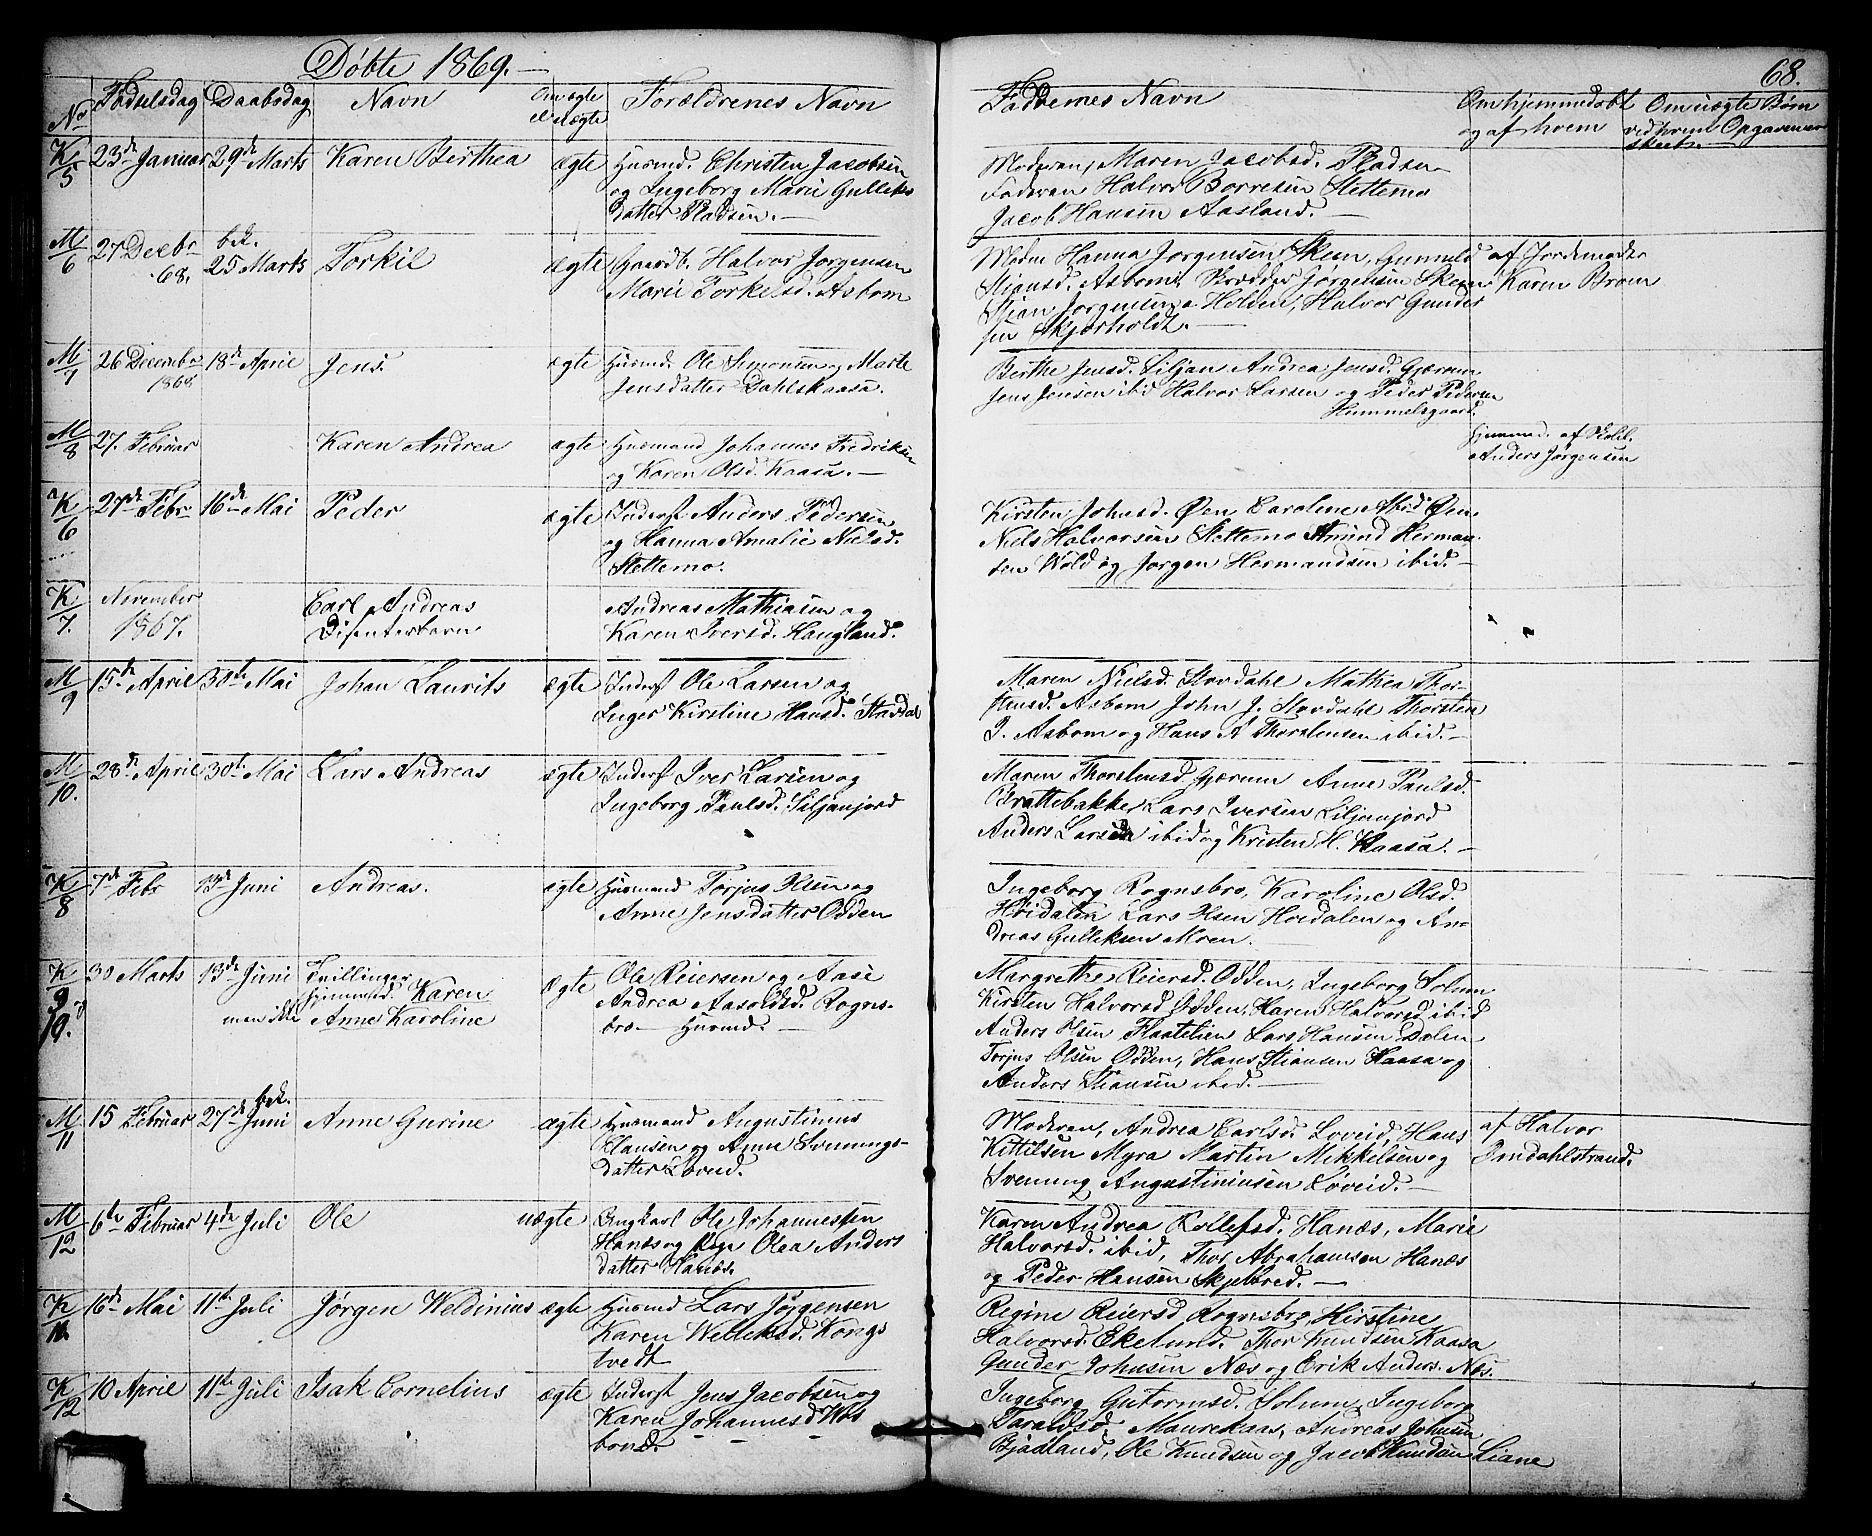 Døbte 1869.
68.
No Fødselsdag Daabsdag Navn Om ægte el. uægte Forældrenes Navn
Faddernes Navn Om hjemmedøbt og af hvem Om uægte Børn ved hvem Opgavener skeet
K/5 23de Januar 29de Marts Karen Berthea ægte Husmd. Christen Jacobsen
og Ingeborg Marie Galleks
datter Pladsen.
Moderen, Maren Jacobsd. Pladsen
Faderen Halvor Borresen Stettemo
Jacob Hansen Aasland.
M/6 27 Decbr 68. bek. 25 Marts Torkil ægte Gaardb. Halvor Jørgensen
Marie Torkelsd. Asbom
Modm Hanna Jørgensen, Skeen, Gunnild
Stiansd. Asbom, Skrædder Jørgensen Skeen
Stian Jørgensen Holden, Halvor Gunder
sen Skjørholdt.
af Jordemoder
Karen Brom
M/7 26 Decembr 1868 18de April Jens. ægte Husmd. Ole Simonsen og Marte
Jensdatter Dahlskaasa.
Berthe Jensd. Siljan Andrea Jensd. Gjærum
Jens Jensen ibid Halvor Larsen og Peder Pedersen
Hummelsgaard.
M/8 27. Februar Karen Andrea ægte Husmand Johannes Fredriksen
og Karen Olsd. Kaasa.
hjemmed. af
Anders Jørgensen
K/6 27de Febr 16de Mai Peder ægte Inderst Anders Pedersen
og Hanna Amalie Nielsd.
Stettemo.
Kirsten Johnsd. Øen Caroline Øen
Niels Halvorsen Stettemo Amund Herman
sen Wold og Jørgen Hermandsen ibid.
K/7. November 1867. Carl Andreas
Disenterbarn
Andreas Mathiasen og
Karen Iversd. Haugland.
M/9 15de April 30te Mai Johan Laurits ægte Inderst Ole Larsen og
Inger Kirstine Hansd. Stavdal
Maren Nielsd. Stavdahl Mathea Thor-
stensd. Asbom John J. Stavdahl Thorsten
J. Asbom og Hans A Thorstensen ibid.
M/10. 28de April 30te Mai Lars Andreas ægte Inderst Iver Larsen og
Ingeborg Paulsd. Siljanjord
Maren Thorstensd. Gjærum Anne Paulsd.
Brattebakke Lars Iversen Siljanjord
Anders Larsen ibid og Kristen H. Kaasa.
K/8 7de Febr 13de Juni Andreas. ægte Husmand Torjus Olsen og
Anne Jensdatter Odden
Ingeborg Rognsbro, Karoline Olsd.
Høidalen Lars Olsen Høidalen og An-
dreas Galleksen Moen.
K/9 og 10. 30 Marts 13de Juni Tvillinger
hjemmed. Karen
men ikke Anne Karoline
ægte Ole Reiersen og Aase
Andrea Aasoldsd. Rogns-
bro Husmd.
Margrethe Reiersd. Odden, Ingeborg Solum
Kirsten Halvorsd Odden, Karen Halvorsd ibid
Anders Olsen Flaatelien Lars Hansen Dalen
Torjus Olsen Odden, Hans Stiansen Kaasa og
Anders Stiansen ibid.
M/11 15 Februar 27de bek. Juni Anne Gurine ægte Husmand Augustinus
Hansen og Anne Svennings-
datter Løveid.
Moderen, Andrea Carlsd. Løveid, Hans
Kittilsen Myra Martin Mikkelsen og
Svennung Augustiniusen Løveid.
af Halvor
Omdahlstrand.
M/12 6te Februar 4de Juli Ole uægte Ungkarl Ole Johannessen
Hanæs og Pige Olea Anders
datter Hanæs.
Karen Andrea Rollefsd. Hanæs, Marie
Halvorsd. ibid, Thor Abrahamsen Hanæs
og Peder Hansen Skjelbred.
K/11. 16de Mai 11te Juli Jørgen Weldinius ægte Husmd Lars Jørgensen
Karen Welleksd. Kongs
tvedt
Regine Reiersd Rognsbro, Kirstine
Halvorsd. Ekelund. Thor Knudsen Kaasa
Gunder Johnsen Næs og Erik Anders. Næs.
K/12 10 April 11te Juli Isak Cornelius ægte Inderst Jens Jacobsen og
Karen Johannesd Wos
bond.
Ingeborg Gutormsd. Solum, Ingeborg
Taraldsd. Maurekaas, Andreas Johnsen
Bjadland, Ole Knudsen og Jacob Knudsen Liane